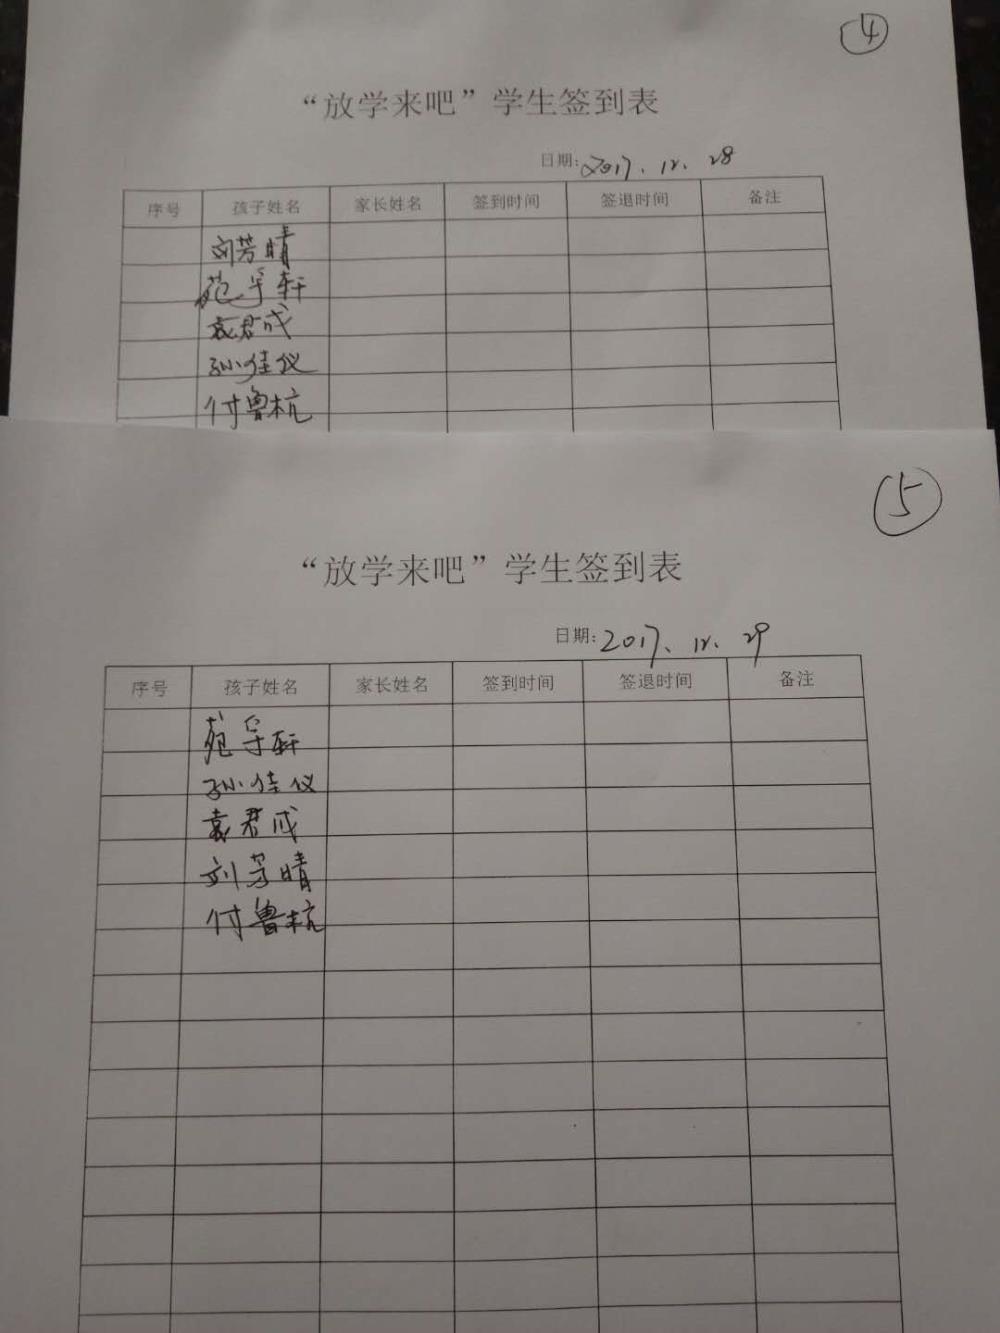 ④
“放学来吧”学生签到表
日期: 2017. 12. 28
序号 孩子姓名 家长姓名 签到时间 签退时间 备注
刘芳晴
苑宇轩
袁君成
孙佳仪
付鲁杭
⑤
“放学来吧”学生签到表
日期: 2017. 12. 29
序号 孩子姓名 家长姓名 签到时间 签退时间 备注
苑宇轩
孙佳仪
袁君成
刘芳晴
付鲁杭